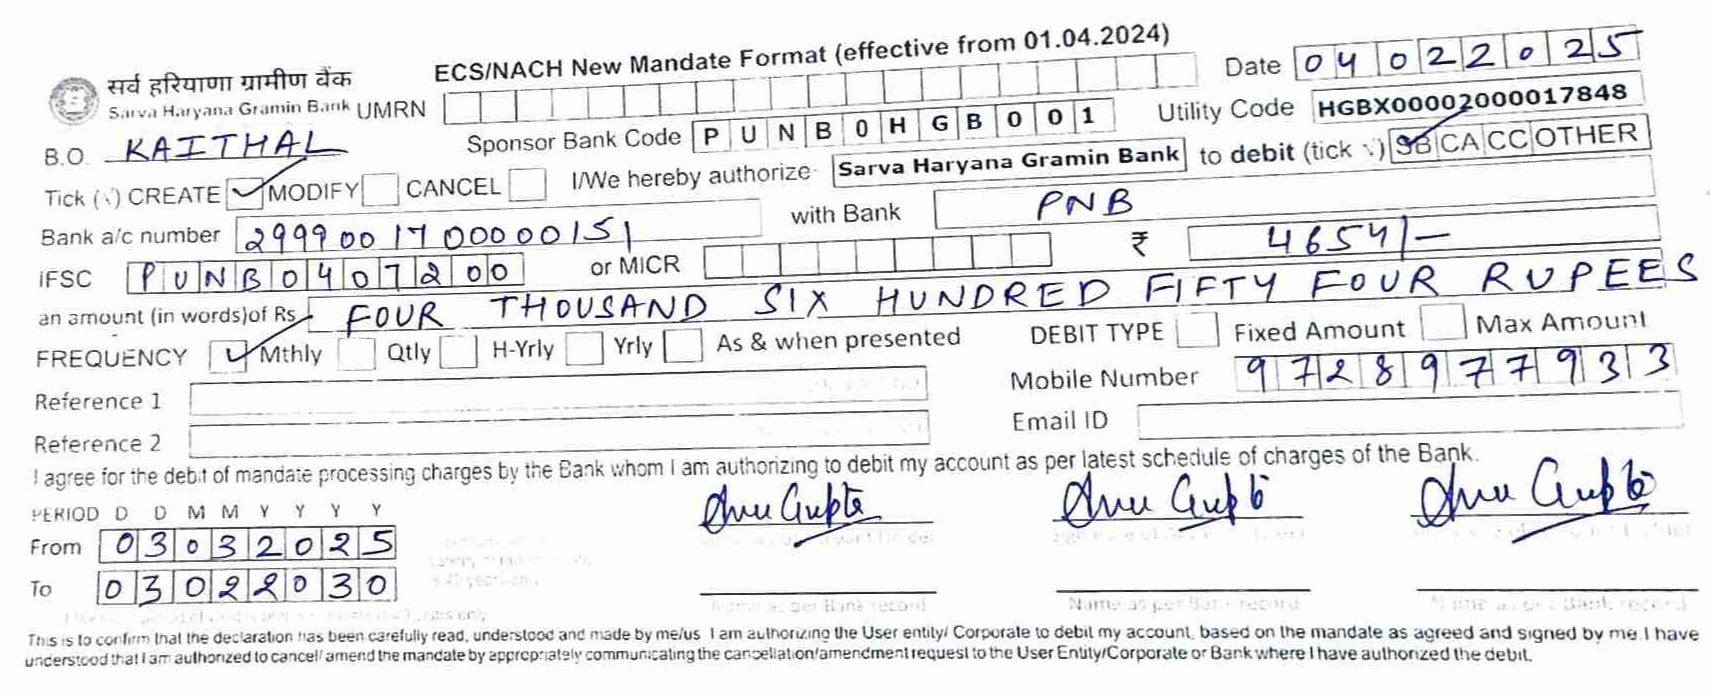 ECS/NACH New Mandate Format (effective from 01.04.2024)
सर्व हरियाणा ग्रामीण बैंक
Sarva Haryana Gramin Bank UMRN Date 04022025
B.O. KAITHAL Sponsor Bank Code PUNB0HGB001 Utility Code HGBX00002000017848
Tick (√) CREATE ✓ MODIFY CANCEL I/We hereby authorize Sarva Haryana Gramin Bank to debit (tick √) SB CA CC OTHER
Bank a/c number 2999001700000151 with Bank PNB
IFSC PUNB0407200 or MICR ₹ 4654/-
an amount (in words) of Rs FOUR THOUSAND SIX HUNDRED FIFTY FOUR RUPEES
FREQUENCY ✓ Mthly Qtly H-Yrly Yrly As & when presented DEBIT TYPE Fixed Amount Max Amount
Reference 1 Mobile Number 9728977933
Reference 2 Email ID
I agree for the debit of mandate processing charges by the Bank whom I am authorizing to debit my account as per latest schedule of charges of the Bank.
PERIOD D D M M Y Y Y Y
From 03032025
To 03022030
Name as per Bank record Name as per Bank record Name as per Bank record
This is to confirm that the declaration has been carefully read, understood and made by me/us. I am authorizing the User entity/ Corporate to debit my account, based on the mandate as agreed and signed by me. I have
understood that I am authorized to cancel/ amend the mandate by appropriately communicating the cancellation/amendment request to the User Entity/Corporate or Bank where I have authorized the debit.